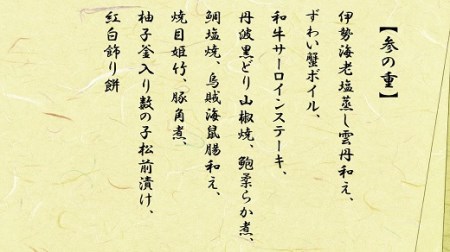 【参の重】
伊勢海老塩蒸し雲丹和え、
ずわい蟹ボイル、
和牛サーロインステーキ、
丹波黒どり山椒焼、鮑柔らか煮、
鯛塩焼、烏賊海鼠腸和え、
焼目姫竹、豚角煮、
柚子釜入り数の子松前漬け、
紅白飾り餅